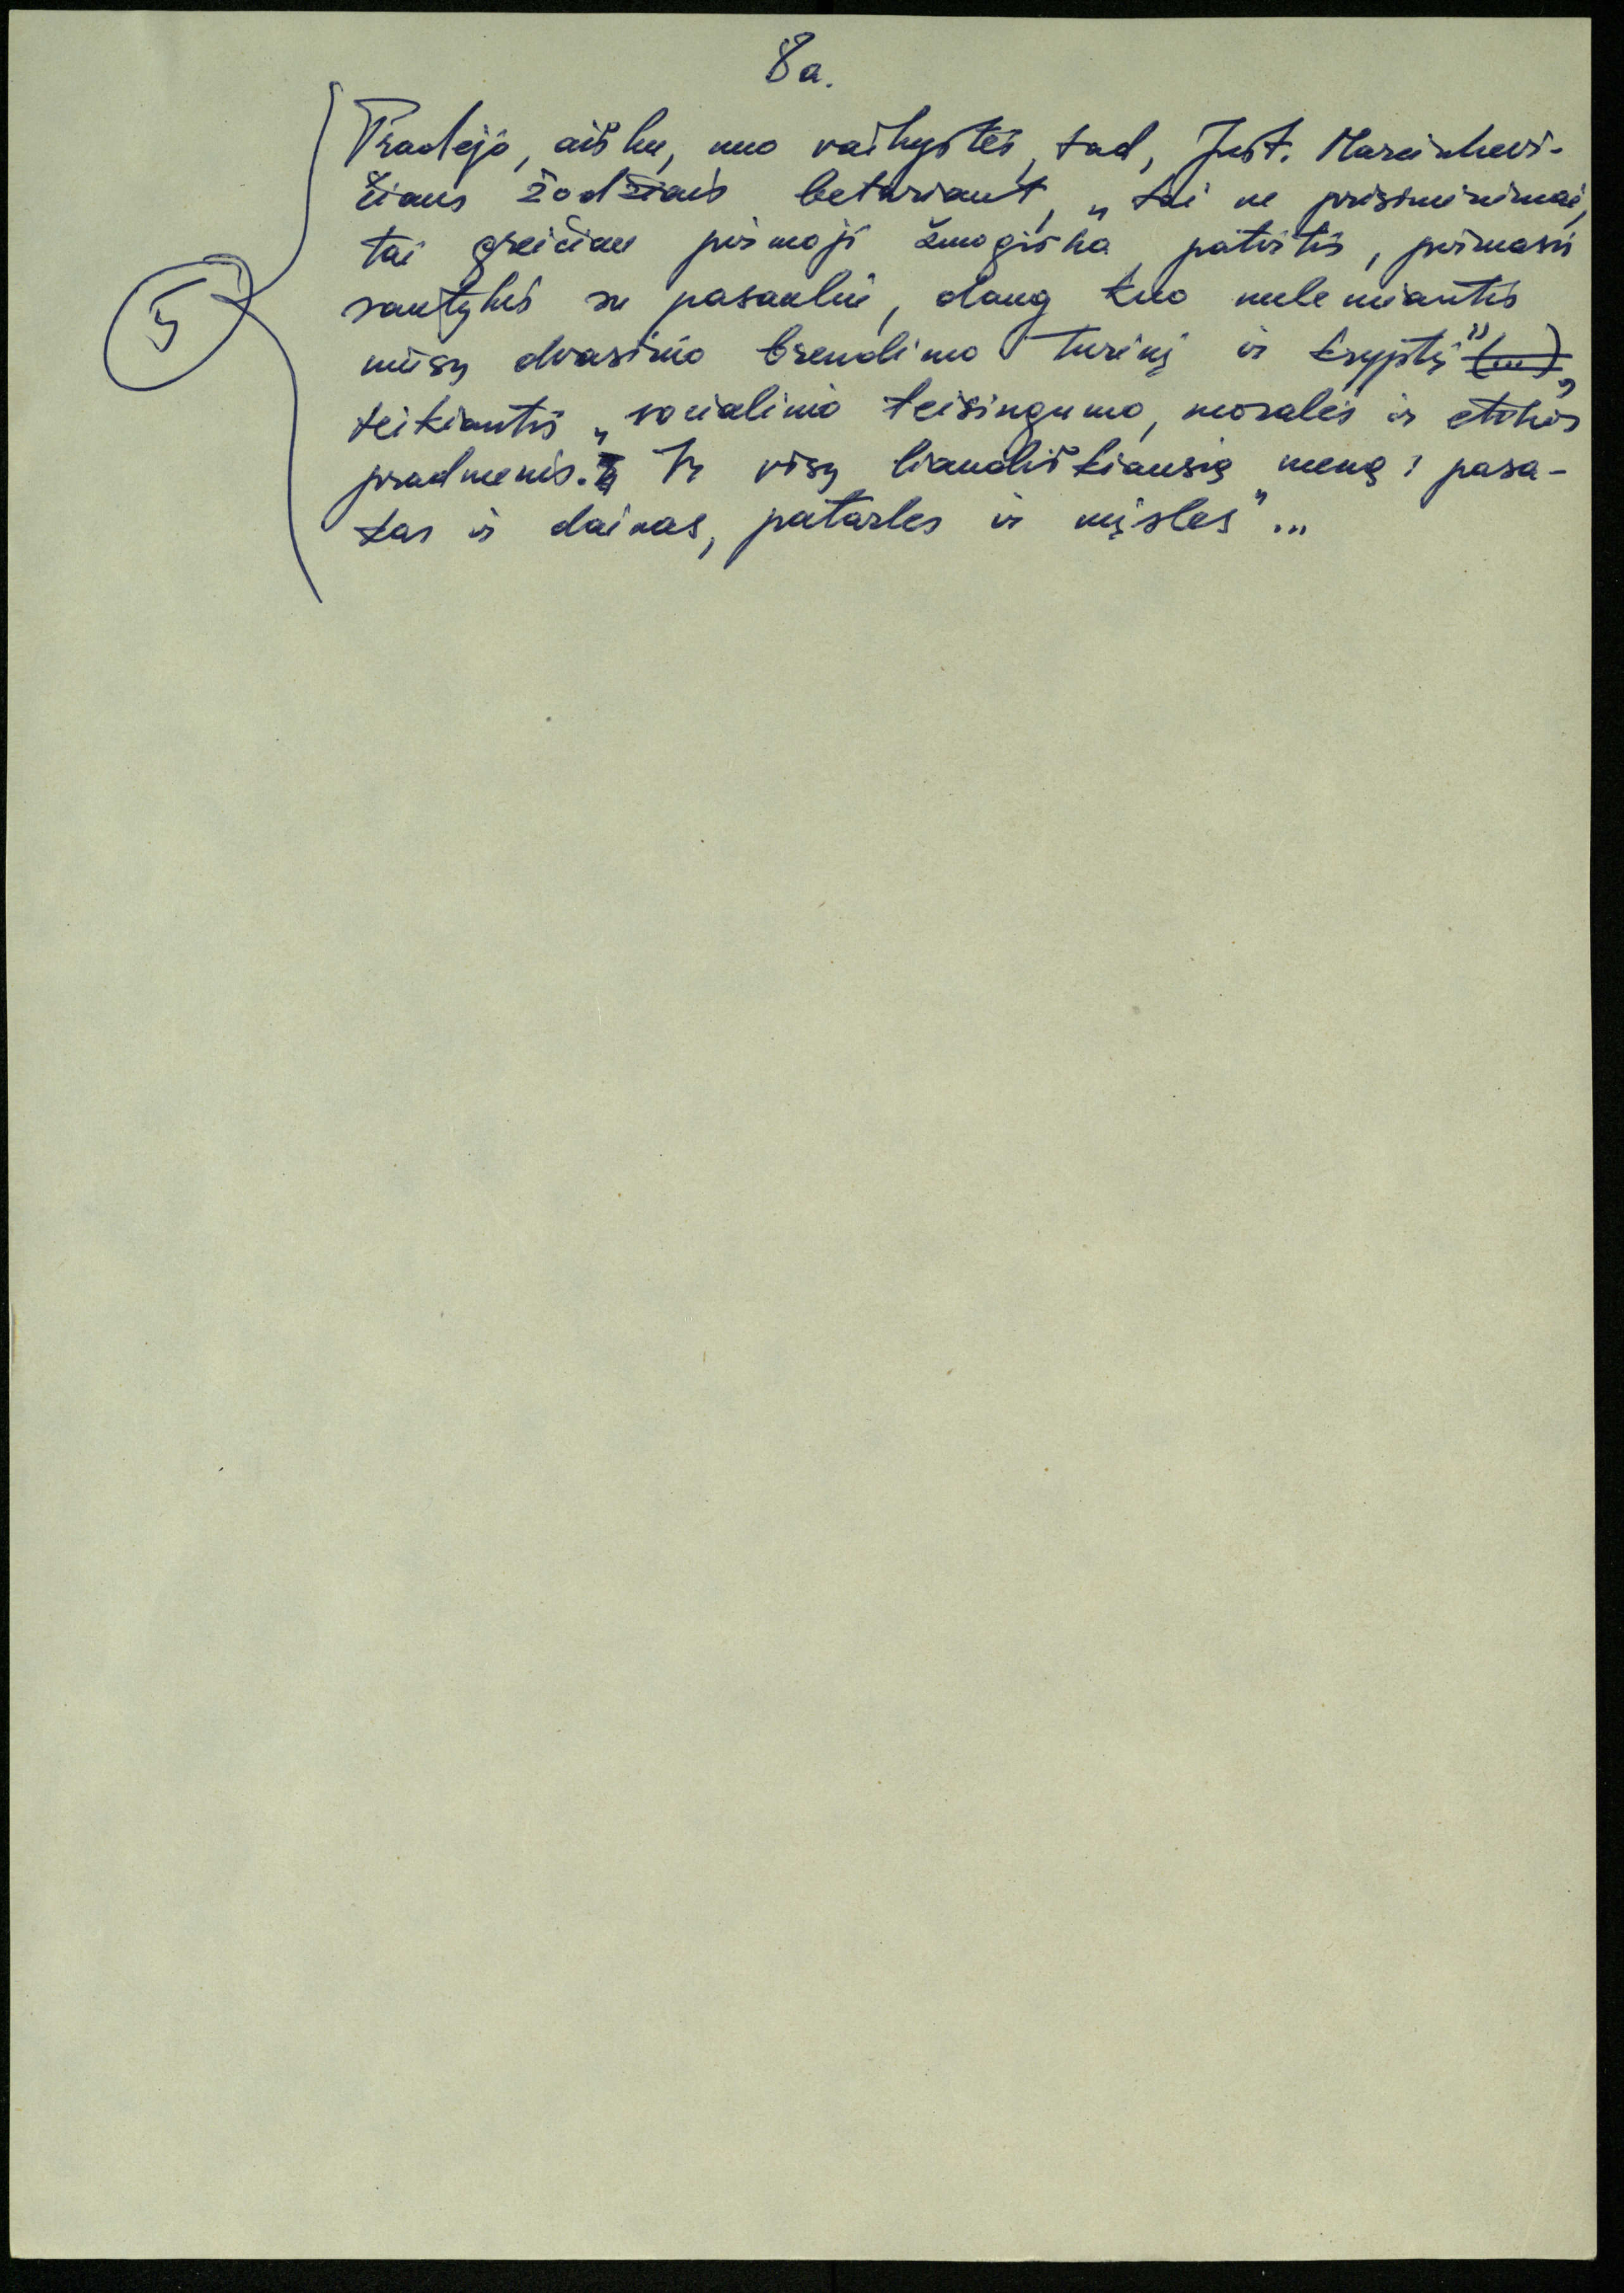 8a.
Pradėjo, aišku, nuo vaikystės, tad, Just. Marcinkevi-
čiaus žodžiais betariant, „tai ne prisiminimai,
tai greičiau pirmoji žmogiška patirtis, pirmasis
santykis su pasauliu, daug kuo nulemiantis
mūsų dvasinio brendimo turinį ir kryptį" (...),
5
teikiantis „socialinio teisingumo, moralės ir etikos
pradmenis. Ir visų liaudiškiausią meną: pasa-
kas ir dainas, patarles ir mįsles"...